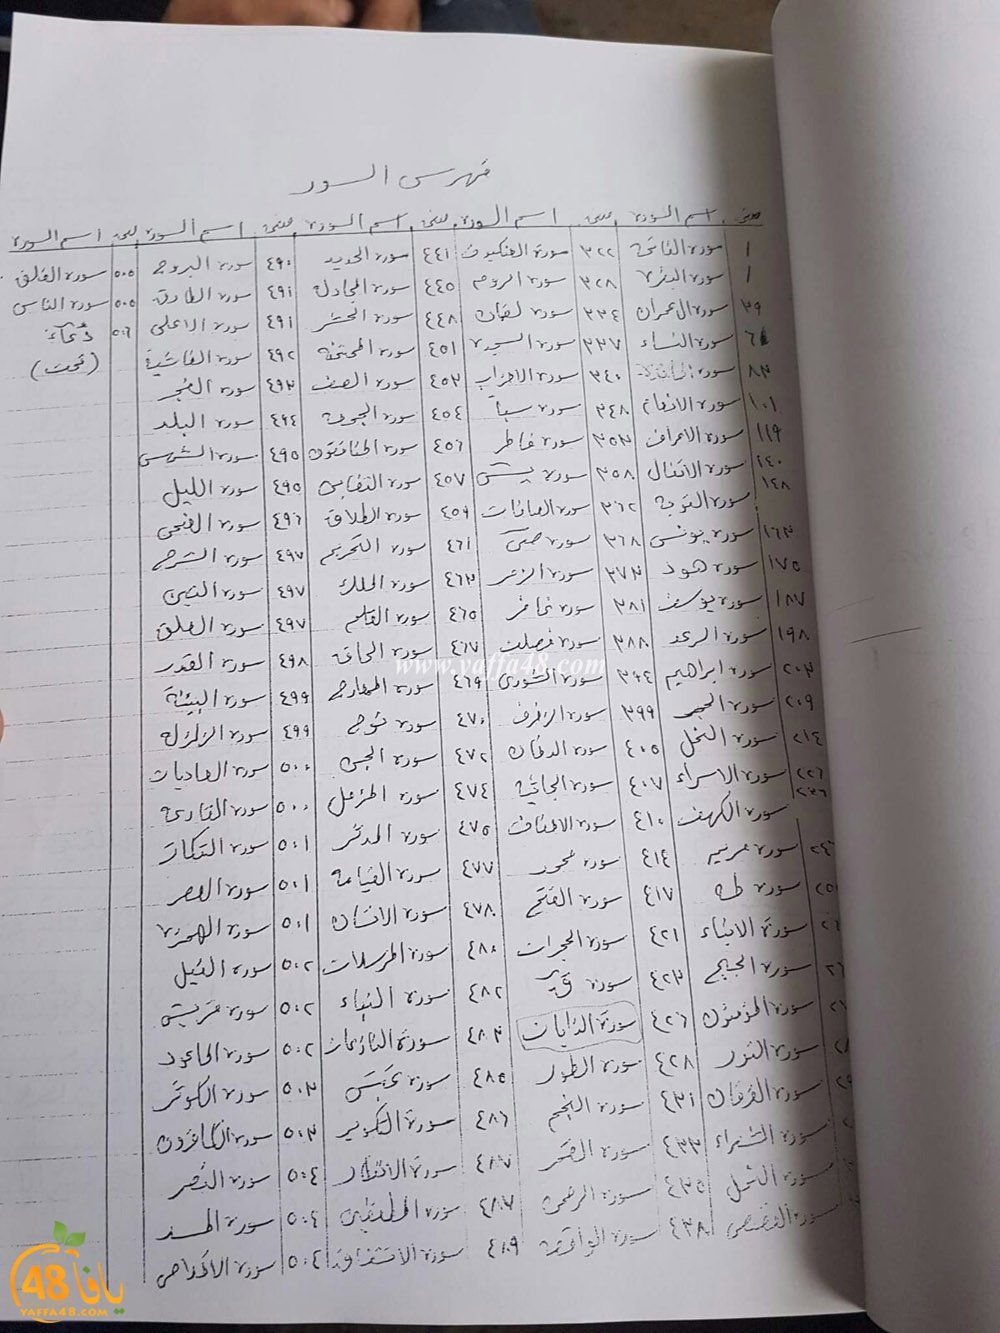 فهرس السور
صفحة اسم السورة صفحة اسم السورة صفحة اسم السورة صفحة اسم السورة صفحة اسم السورة
١ سورة الفاتحة ٣٢٢ سورة العنكبوت ٤٤١ سورة الحديد ٤٩٠ سورة البروج ٥٠٥ سورة الفلق
١ سورة البقرة ٣٢٨ سورة الروم ٤٤٥ سورة المجادلة ٤٩١ سورة الطارق ٥٠٥ سورة الناس
٣٩ سورة آل عمران ٣٣٤ سورة لقمان ٤٤٨ سورة الحشر ٤٩١ سورة الاعلى ٥٠٦ دُعَاء
٦١ سورة النساء ٣٣٧ سورة السجدة ٤٥١ سورة الممتحنة ٤٩٢ سورة الغاشية (تمت)
٨٣ سورة المائدة ٣٤٠ سورة الاحزاب ٤٥٣ سورة الصف ٤٩٣ سورة الفجر
١٠١ سورة الانعام ٣٤٨ سورة سبأ ٤٥٤ سورة الجمعة ٤٩٤ سورة البلد
١١٩ سورة الاعراف ٣٥٣ سورة فاطر ٤٥٦ سورة المنافقون ٤٩٥ سورة الشمس
١٤٠ سورة الانفال ٣٥٨ سورة يس ٤٥٧ سورة التغابن ٤٩٥ سورة الليل
١٤٨ سورة التوبة ٣٦٢ سورة الصافات ٤٥٩ سورة الطلاق ٤٩٦ سورة الضحى
١٦٣ سورة يونس ٣٦٨ سورة ص ٤٦١ سورة التحريم ٤٩٧ سورة الشرح
١٧٥ سورة هود ٣٧٣ سورة الزمر ٤٦٣ سورة الملك ٤٩٧ سورة التين
١٨٧ سورة يوسف ٣٨١ سورة غافر ٤٦٥ سورة القلم ٤٩٧ سورة العلق
١٩٨ سورة الرعد ٣٨٨ سورة فصلت ٤٦٧ سورة الحاقة ٤٩٨ سورة القدر
٢٠٣ سورة ابراهيم ٣٩٤ سورة الشورى ٤٦٩ سورة المعارج ٤٩٩ سورة البينة
٢٠٩ سورة الحجر ٣٩٩ سورة الزخرف ٤٧٠ سورة نوح ٤٩٩ سورة الزلزلة
٢١٤ سورة النحل ٤٠٥ سورة الدخان ٤٧٢ سورة الجن ٥٠٠ سورة العاديات
٢٢٦ سورة الاسراء ٤٠٧ سورة الجاثية ٤٧٤ سورة المزمل ٥٠٠ سورة القارعة
٢٣٦ سورة الكهف ٤١٠ سورة الاحقاف ٤٧٥ سورة المدثر ٥٠١ سورة التكاثر
سورة مريم ٤١٤ سورة محمد ٤٧٧ سورة القيامة ٥٠١ سورة العصر
سورة طه ٤١٧ سورة الفتح ٤٧٨ سورة الانسان ٥٠١ سورة الهمزة
سورة الانبياء ٤٢١ سورة الحجرات ٤٨٠ سورة المرسلات ٥٠٢ سورة الفيل
سورة الحج ٤٢٣ سورة ق ٤٨٢ سورة النبإ ٥٠٢ سورة قريش
سورة المؤمنون ٤٢٦ سورة الذاريات ٤٨٣ سورة النازعات ٥٠٢ سورة الماعون
سورة النور ٤٢٨ سورة الطور ٤٨٥ سورة عبس ٥٠٣ سورة الكوثر
سورة الفرقان ٤٣١ سورة النجم ٤٨٦ سورة التكوير ٥٠٣ سورة الكافرون
سورة الشعراء ٤٣٣ سورة القمر ٤٨٧ سورة الانفطار ٥٠٤ سورة النصر
سورة النمل ٤٣٥ سورة الرحمن ٤٨٧ سورة المطففين ٥٠٤ سورة المسد
سورة القصص ٤٣٨ سورة الواقعة ٤٨٩ سورة الانشقاق ٥٠٤ سورة الاخلاص
www.yaffa48.com
يافا 48
YAFFA48.COM